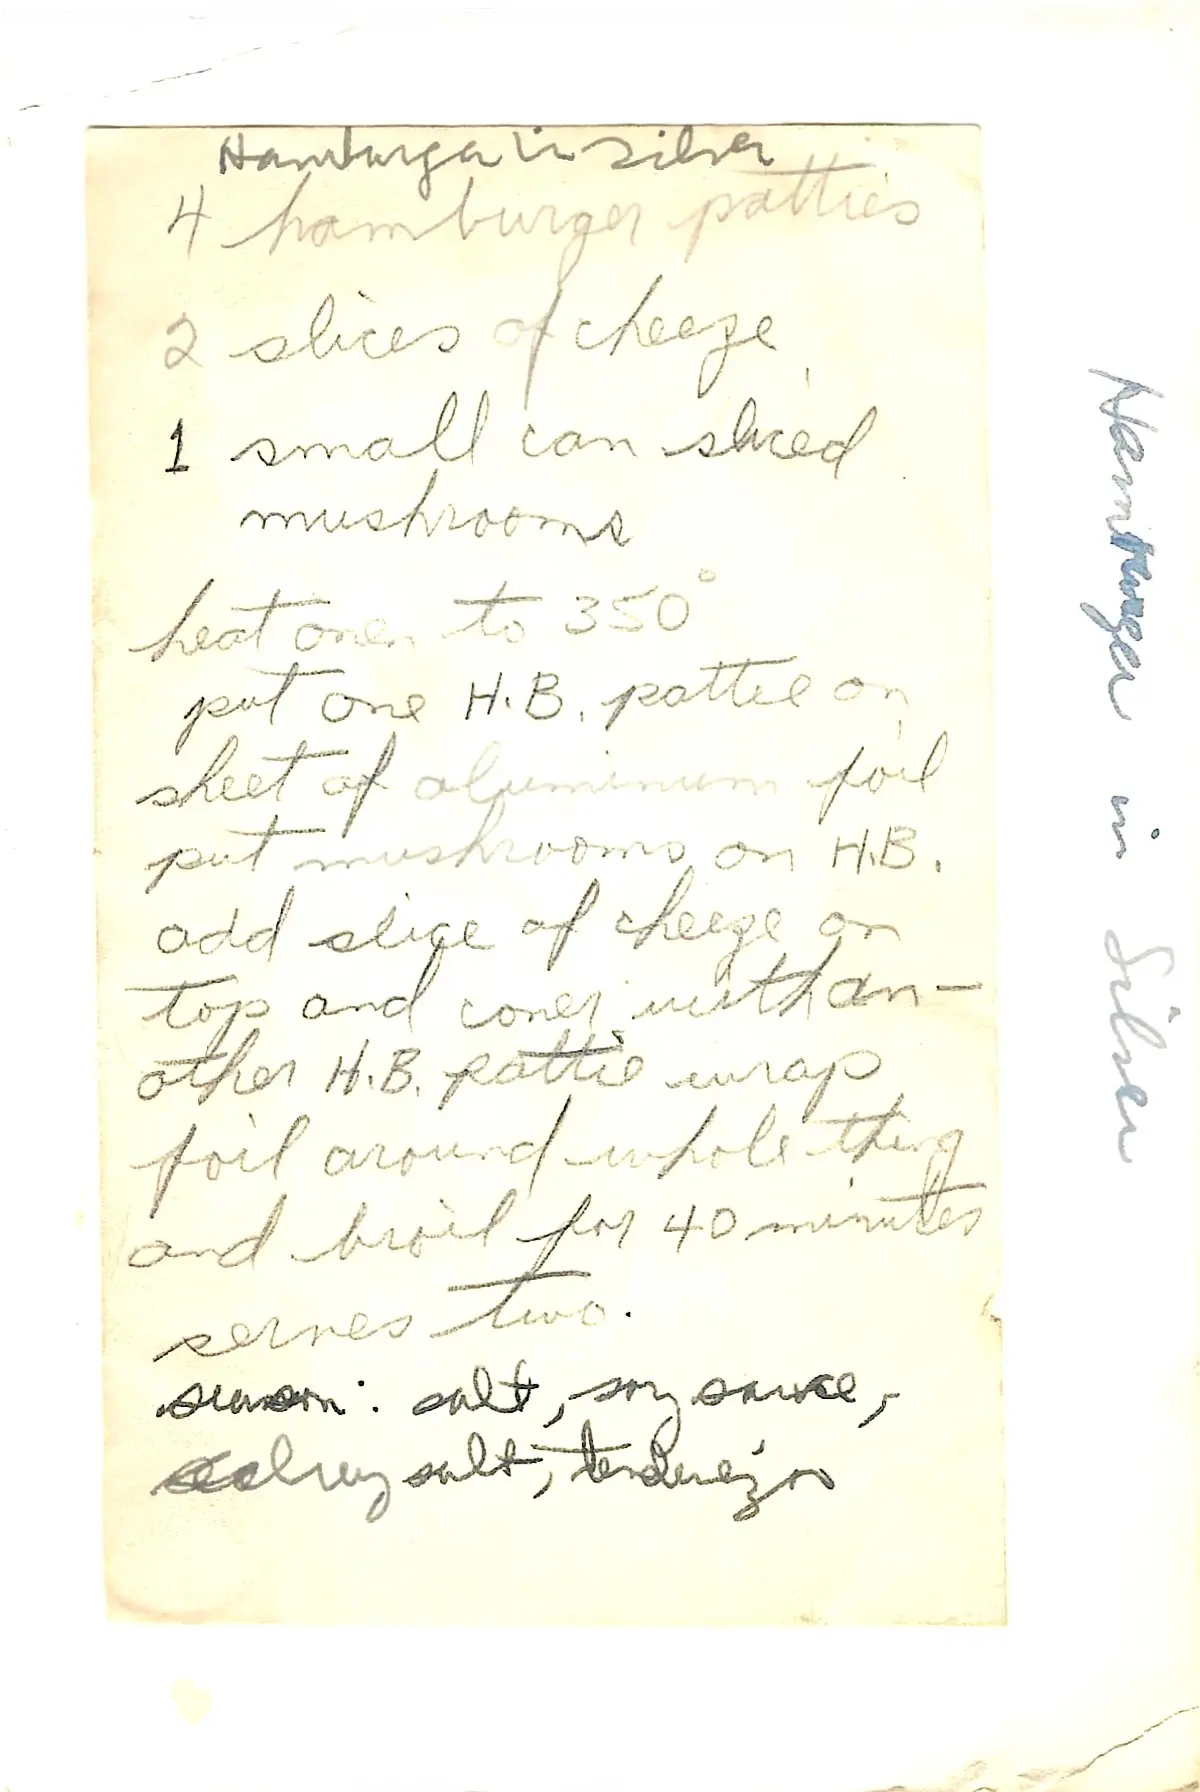 Hamburger in Silver
4 hamburger patties
2 slices of cheeze
1 small can sliced
mushrooms
heat oven to 350°
put one H.B. pattie on
sheet of aluminum foil
put mushrooms on H.B.
add slice of cheeze on
top and cover with an-
other H.B. pattie wrap
foil around whole thing
and broil for 40 minutes
serves two.
season: salt, soy sauce,
celrey salt, tenderizer
Hamburger in Silver